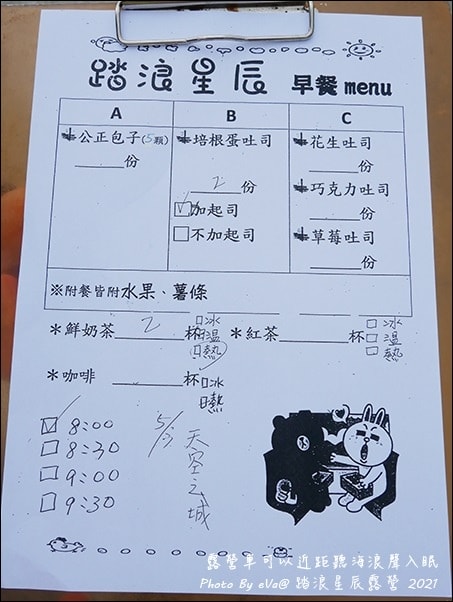 踏浪星辰 早餐menu
A B C
公正包子(5顆)
____份
培根蛋吐司
2 份
加起司
不加起司
花生吐司
____份
巧克力吐司
____份
草莓吐司
____份
※附餐皆附水果、薯條
*鮮奶茶 2 杯 冰 溫 熱
*紅茶____杯 冰 溫 熱
*咖啡____杯 冰 熱
8:00
8:30
9:00
9:30
5/3
天空之城
露營車可以近距聽海浪聲入眠
Photo By eVa@ 踏浪星辰露營 2021